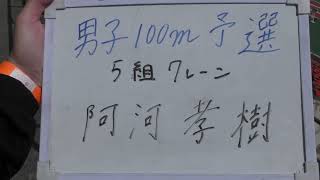 男子100m予選
5組7レーン
阿河孝樹